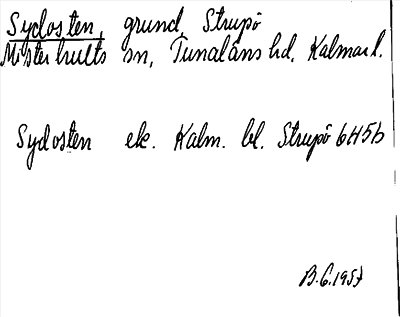 Sydosten, grund, Strupö
Misterhults sn, Tunaläns hd, Kalmar l.
Sydosten ek. Kalm. bl. Strupö 6H5b
B.G.1957